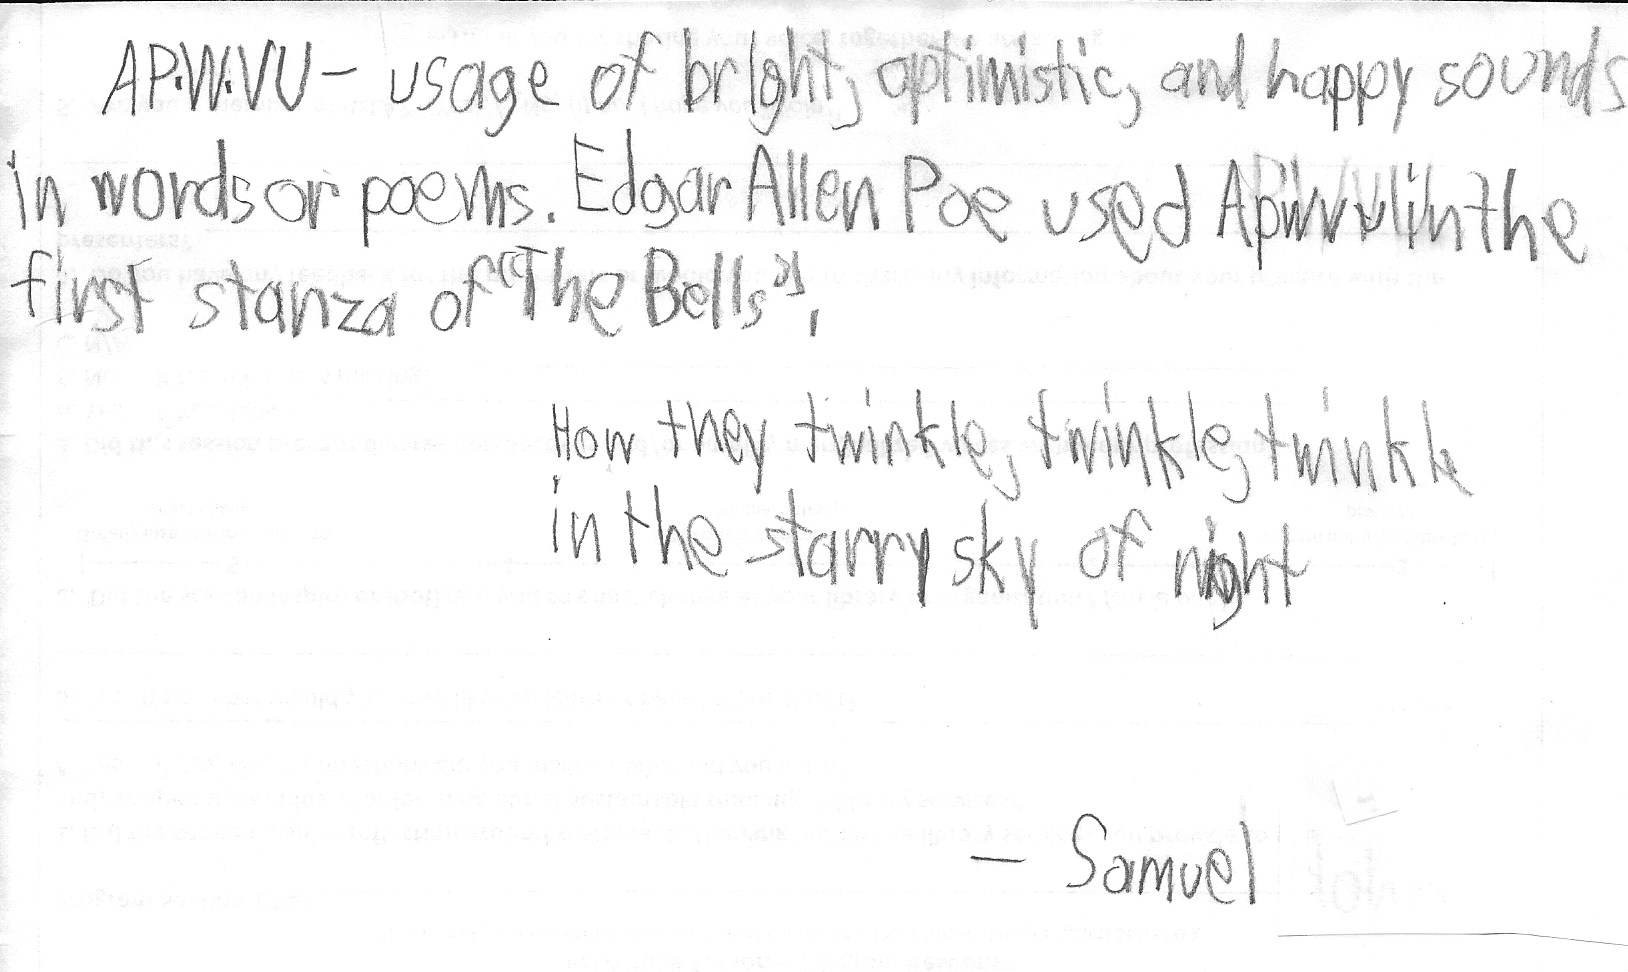 AP.W.VU- usage of bright, optimistic, and happy sounds
in words or poems. Edgar Allen Poe used in the
first stanza of "The Bells",
How they twinkle, twinkle, twinkle
in the starry sky of night
- Samuel